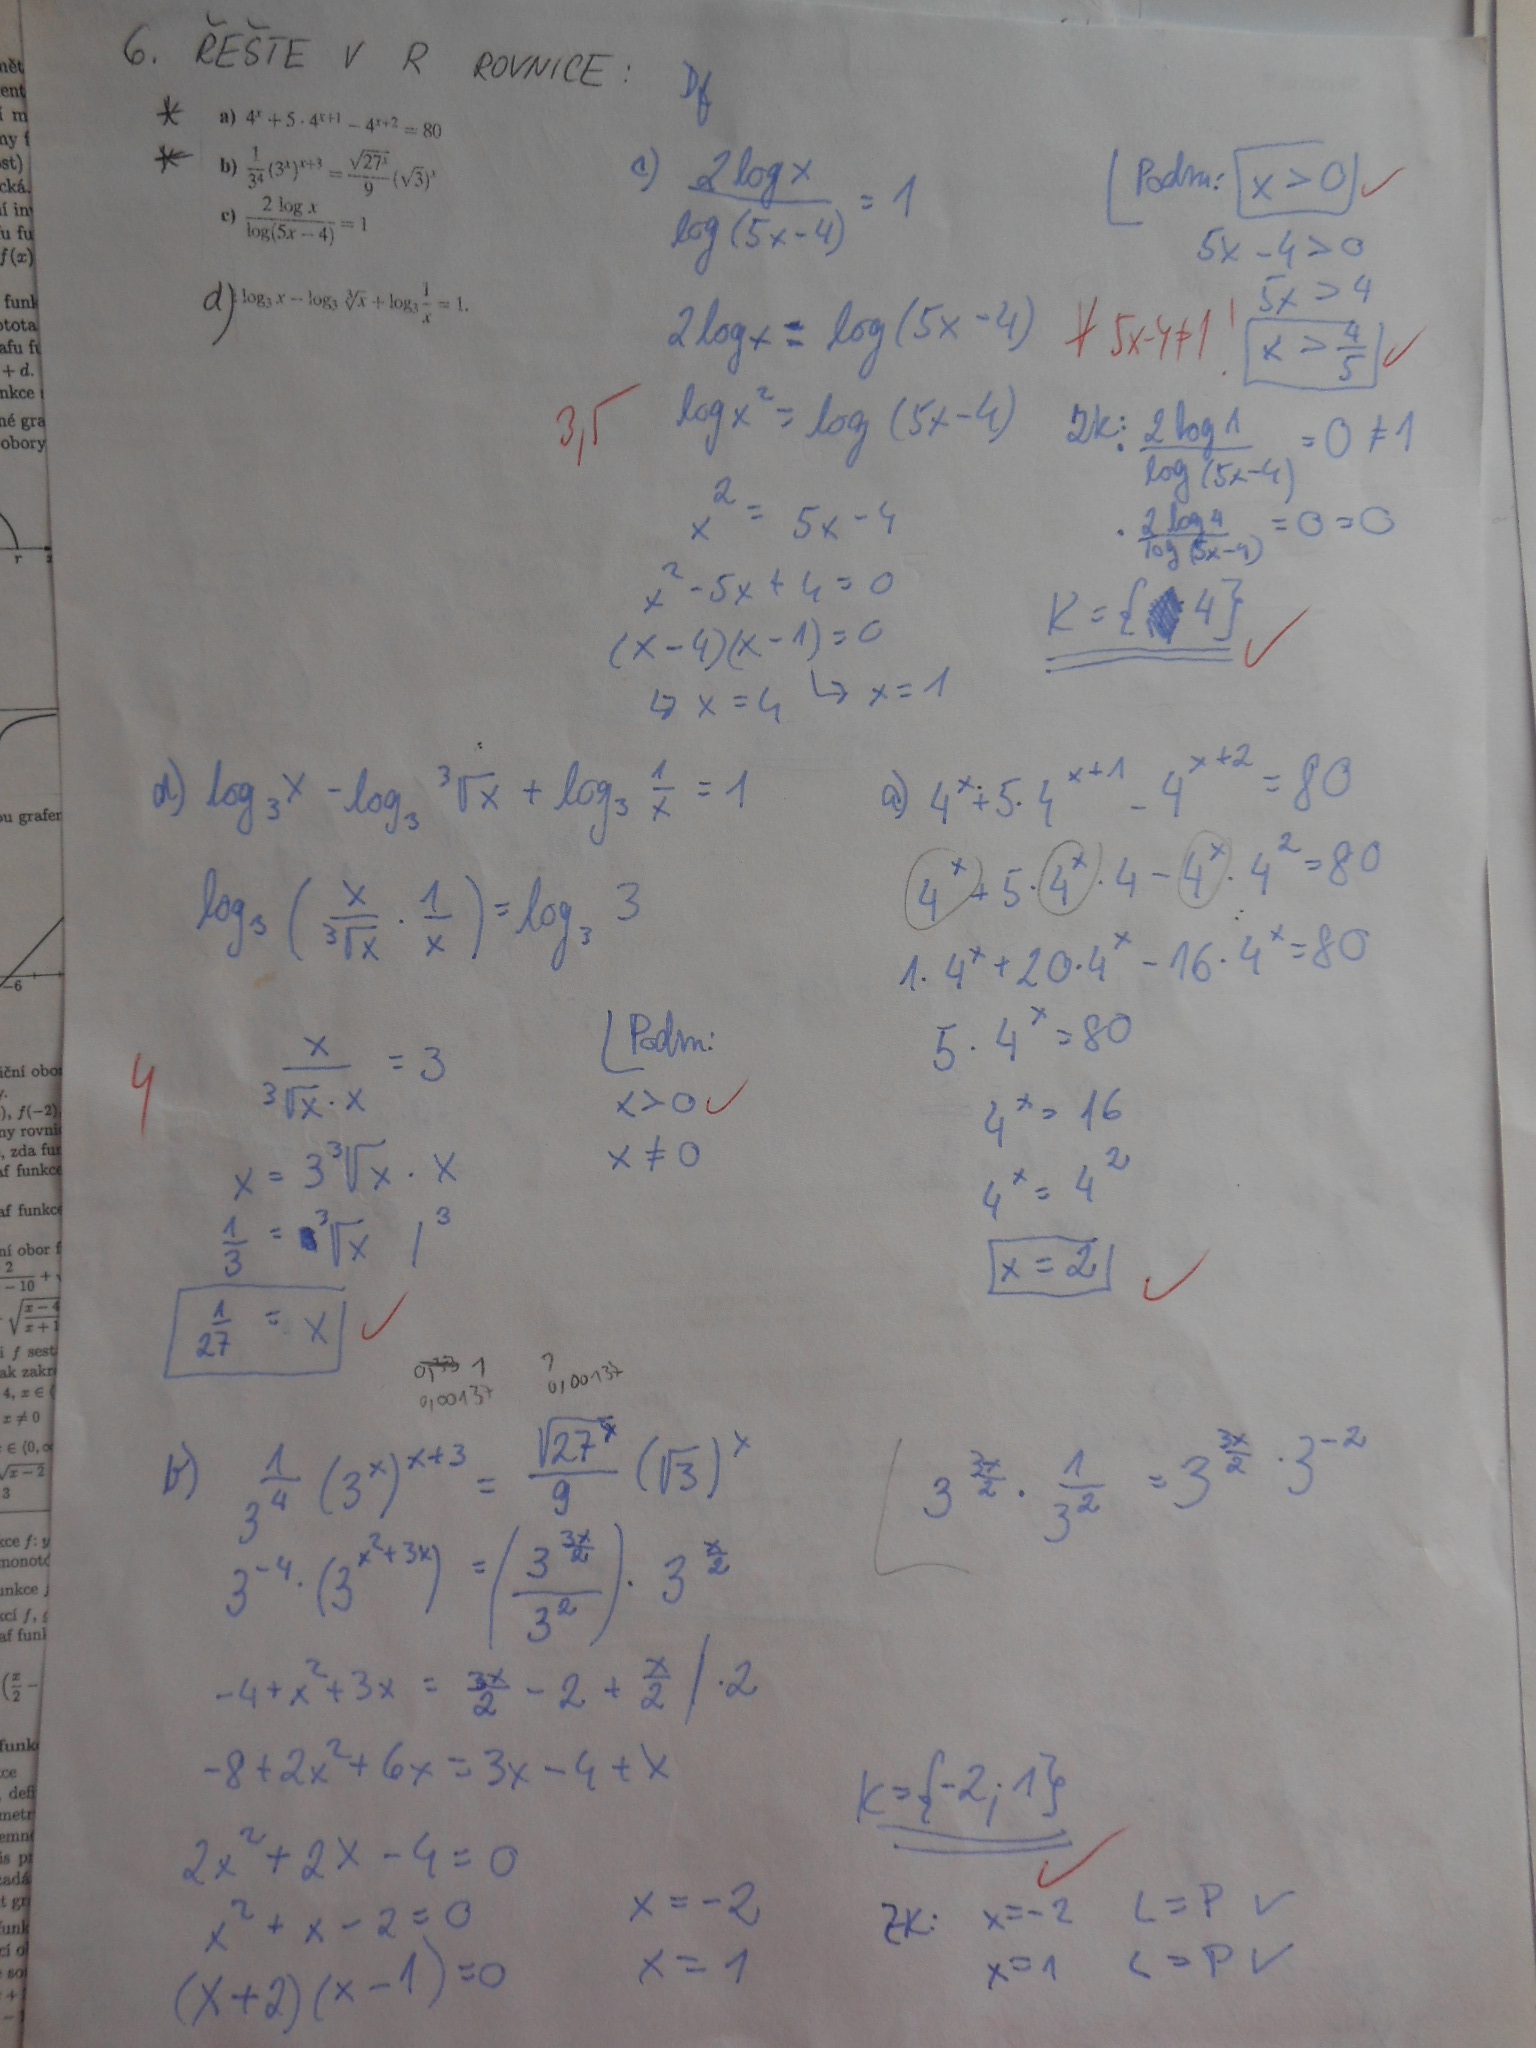 6. ŘEŠTE V R ROVNICE:
* a) 4^x + 5 · 4^{x+1} − 4^{x+2} = 80
* b) \frac{1}{3^4}(3^x)^{x+3} = \frac{\sqrt{27^x}}{9}(\sqrt{3})^x
c) \frac{2 \log x}{\log(5x − 4)} = 1
d) log_3 x − log_3 \sqrt[3]{x} + log_3 \frac{1}{x} = 1.
Df
c) \frac{2 log x}{log (5x-4)} = 1
2 log x = log (5x-4)
log x^2 = log (5x-4)
x^2 = 5x-4
x^2 - 5x + 4 = 0
(x-4)(x-1) = 0
↳ x = 4 ↳ x = 1
3,5
Podm: x > 0 ✓
5x - 4 > 0
5x > 4
x > \frac{4}{5} ✓
+ 5x-4 ≠ 1 !
Zk: \frac{2 log 1}{log (5x-4)} = 0 ≠ 1
· \frac{2 log 4}{log (5x-4)} = 0 = 0
K = { 4} ✓
d) log_3 x - log_3 \sqrt[3]{x} + log_3 \frac{1}{x} = 1
log_3 (\frac{x}{\sqrt[3]{x}} · \frac{1}{x}) = log_3 3
\frac{x}{\sqrt[3]{x} · x} = 3
x = 3 \sqrt[3]{x} · x
\frac{1}{3} = \sqrt[3]{x} /^3
\frac{1}{27} = x ✓
4
Podm:
x > 0 ✓
x ≠ 0
a) 4^x + 5 · 4^{x+1} - 4^{x+2} = 80
4^x + 5 · 4^x · 4 - 4^x · 4^2 = 80
1 · 4^x + 20 · 4^x - 16 · 4^x = 80
5 · 4^x = 80
4^x = 16
4^x = 4^2
x = 2 ✓
1 ?
0,00137 0,00137
b) \frac{1}{3^4} (3^x)^{x+3} = \frac{\sqrt{27^x}}{9} (\sqrt{3})^x
3^{-4} · (3^{x^2+3x}) = (\frac{3^{\frac{3x}{2}}}{3^2}) · 3^{\frac{x}{2}}
-4 + x^2 + 3x = \frac{3x}{2} - 2 + \frac{x}{2} / · 2
-8 + 2x^2 + 6x = 3x - 4 + x
2x^2 + 2x - 4 = 0
x^2 + x - 2 = 0
(x+2)(x-1) = 0
x = -2
x = 1
3^{\frac{3x}{2}} · \frac{1}{3^2} = 3^{\frac{3x}{2}} · 3^{-2}
K = {-2; 1} ✓
Zk: x = -2 L = P ✓
x = 1 L = P ✓